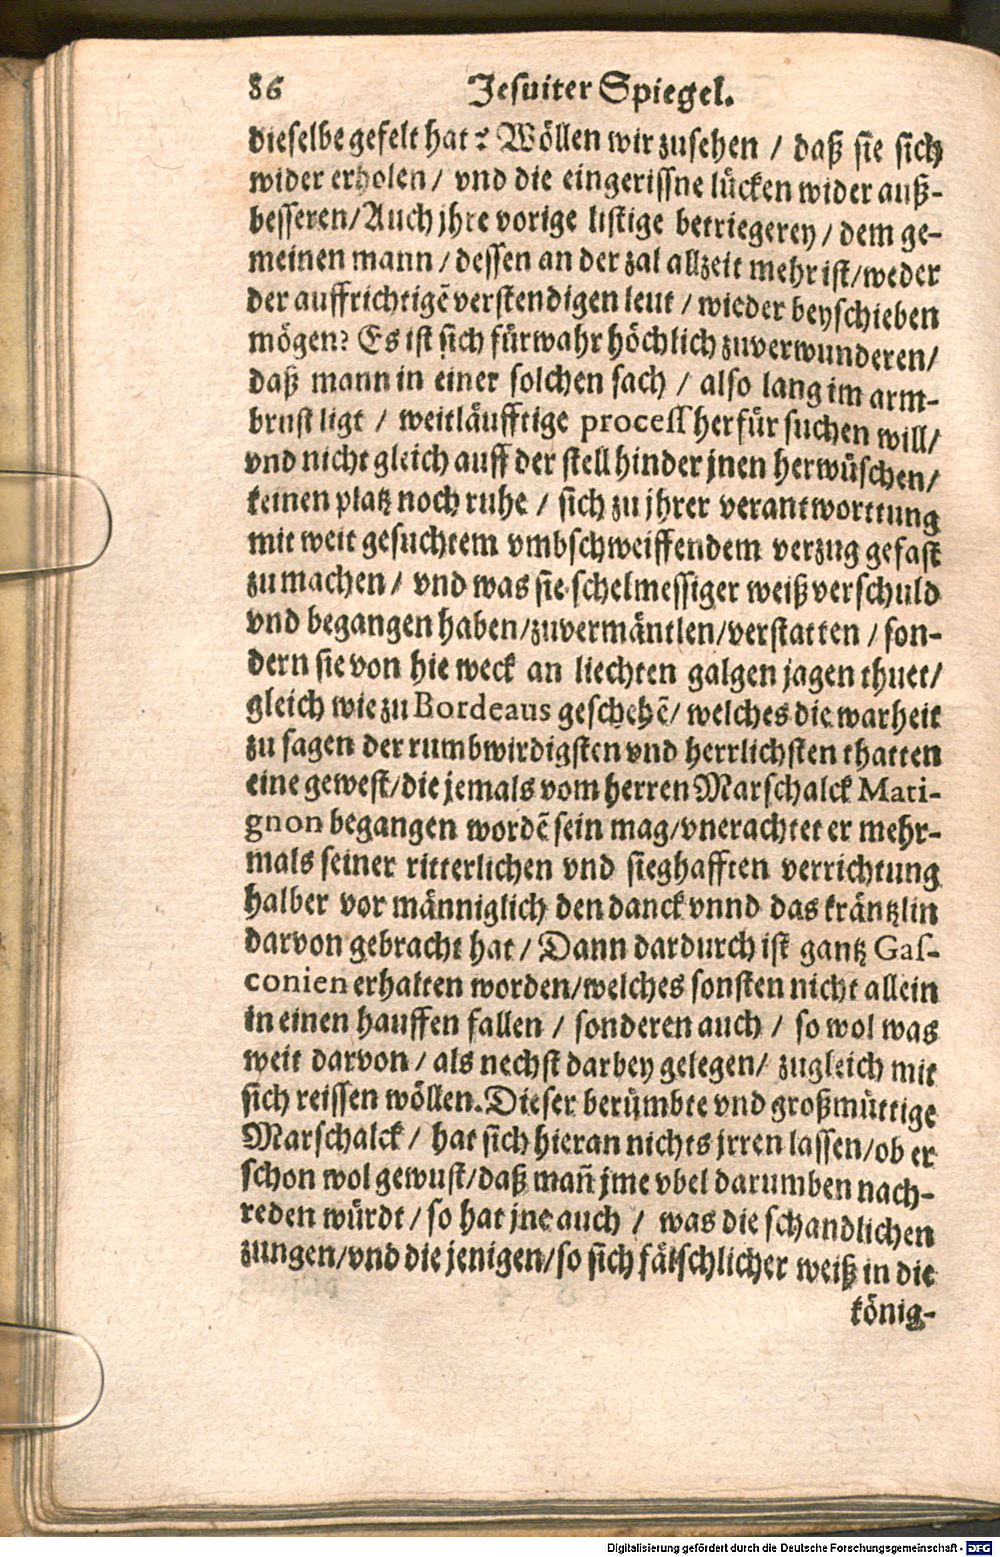 86 Jesuiter Spiegel.
dieselbe gefelt hat? Wöllen wir zusehen / daß sie sich
wider erholen / vnd die eingerissne lücken wider auß-
besseren/Auch jhre vorige listige betriegerey / dem ge-
meinen mann / dessen an der zal allzeit mehr ist/weder
der auffrichtigē verstendigen leut / wieder beyschieben
mögen? Es ist sich fürwahr höchlich zuverwunderen/
daß mann in einer solchen sach / also lang im arm-
brust ligt / weitläufftige process herfür suchen will/
vnd nicht gleich auff der stell hinder jnen herwüschen/
keinen platz noch ruhe / sich zu jhrer verantworttung
mit weit gesuchtem vmbschweiffendem verzug gefast
zu machen / vnd was sie schelmessiger weiß verschuld
vnd begangen haben/zuvermäntlen/verstatten / son-
dern sie von hie weck an liechten galgen jagen thuet/
gleich wie zu Bordeaus geschehē/ welches die warheit
zu sagen der rumbwirdigsten vnd herrlichsten thatten
eine gewest/die jemals vom herren Marschalck Mati-
gnon begangen wordē sein mag/vnerachtet er mehr-
mals seiner ritterlichen vnd sieghafften verrichtung
halber vor männiglich den danck vnnd das kräntzlin
darvon gebracht hat / Dann dardurch ist gantz Gas-
conien erhalten worden/welches sonsten nicht allein
in einen hauffen fallen / sonderen auch / so wol was
weit darvon / als nechst darbey gelegen/ zugleich mit
sich reissen wöllen. Dieser berümbte vnd großmüttige
Marschalck / hat sich hieran nichts jrren lassen/ob er
schon wol gewust/daß mañ jme vbel darumben nach-
reden würdt / so hat jne auch / was die schandlichen
zungen/vnd die jenigen/so sich fälschlicher weiß in die
könig-
Digitalisierung gefördert durch die Deutsche Forschungsgemeinschaft - DFG